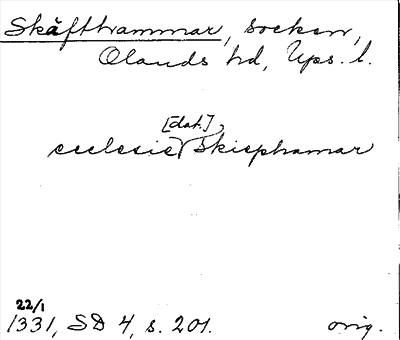 Skäfthammar, socken,
Olands hd, Ups. l.
[dat.]
ecclesie Skiephamar
22/1
1331, SD 4, s. 201.
orig.